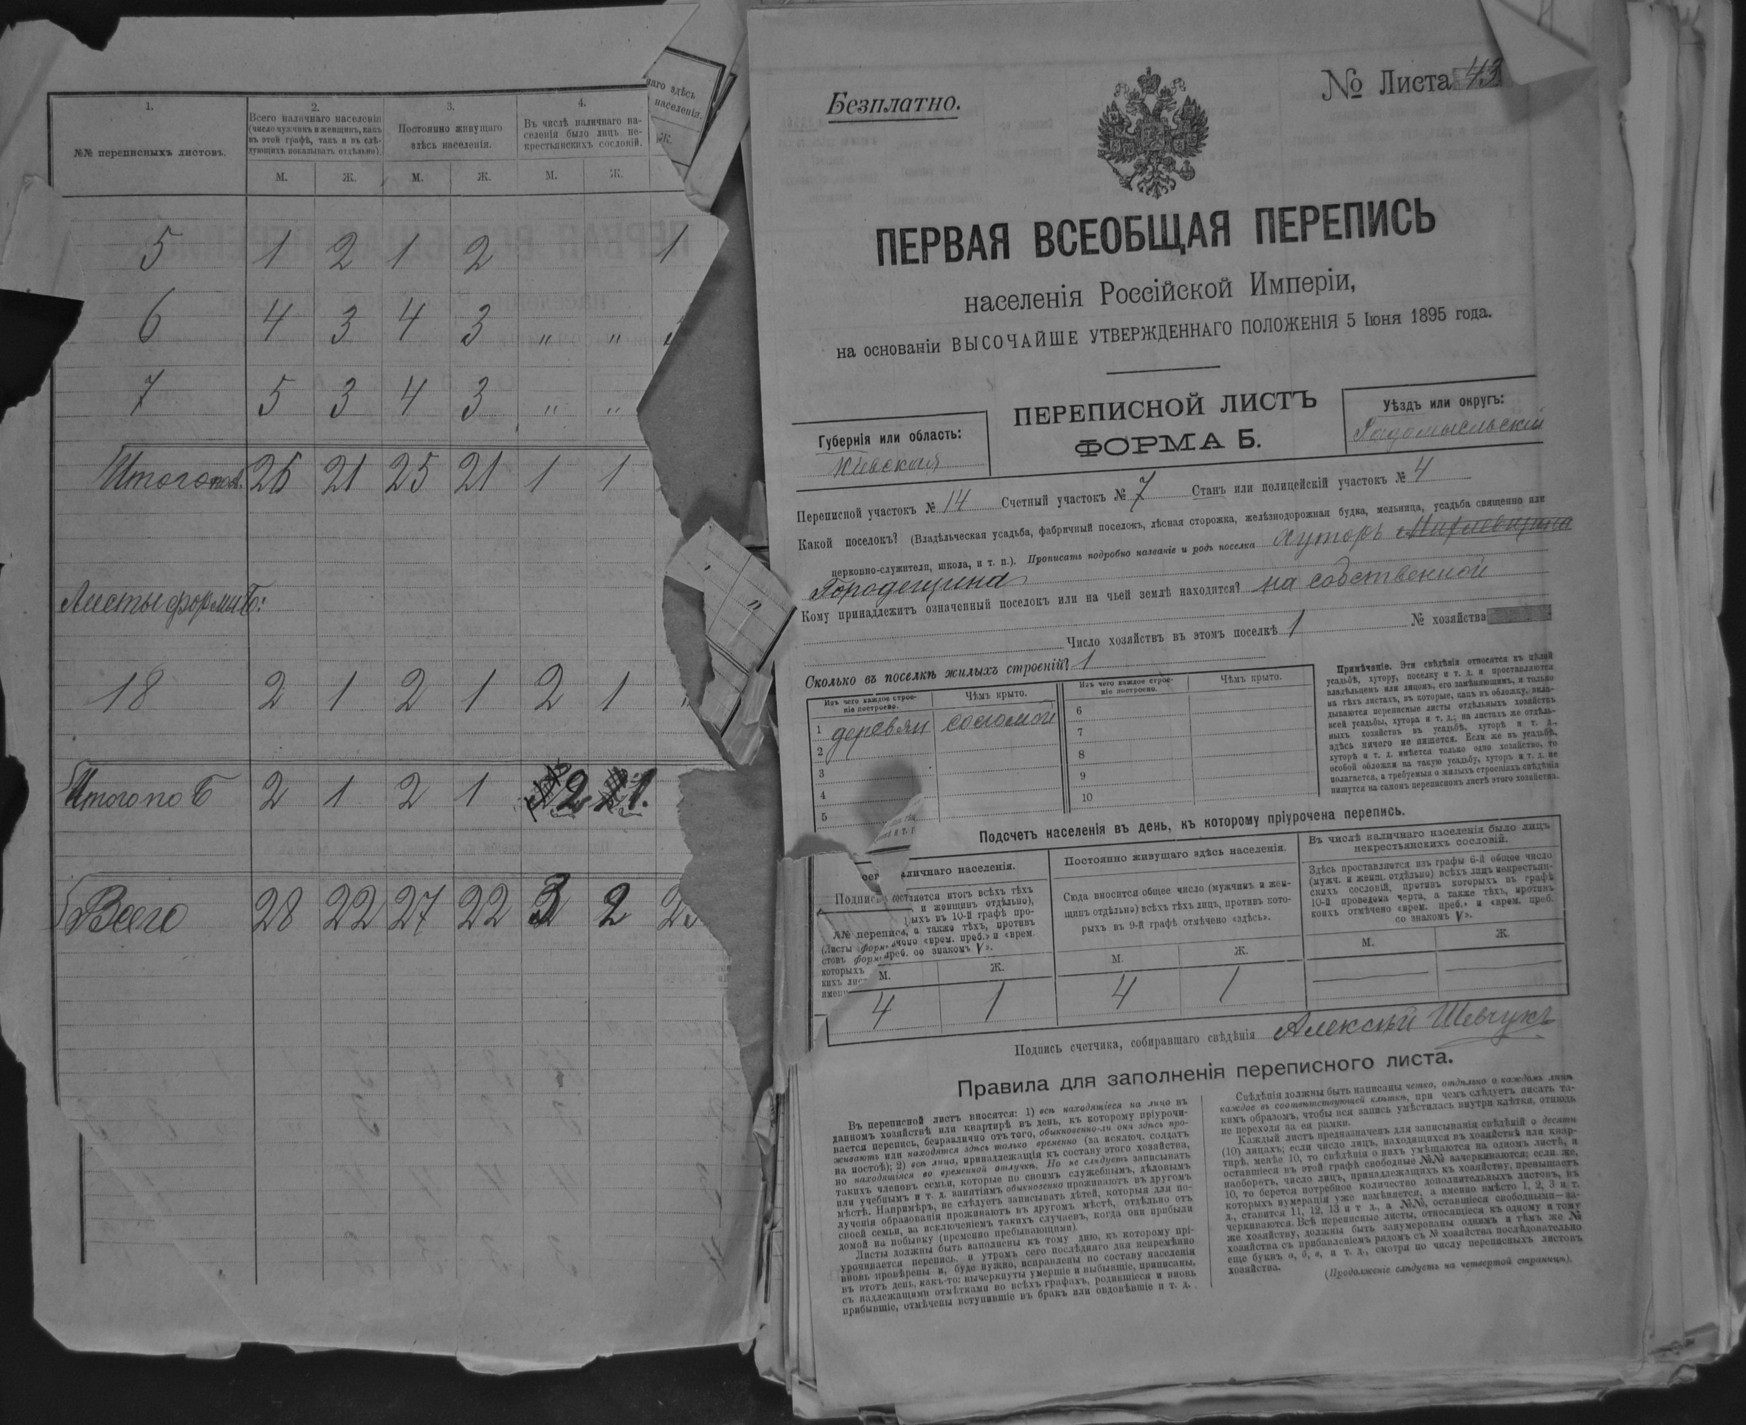 1.
2.
3.
4.
№№ переписныхъ листовъ.
Всего наличнаго населенія
(число мужчинъ и женщинъ, какъ
въ этой графѣ, такъ и въ слѣ-
дующихъ показывать отдѣльно).
Постоянно живущаго
здѣсь населенія.
Въ числѣ наличнаго на-
селенія было лицъ не-
крестьянскихъ сословій.
наго здѣсь
населенія.
М. Ж. М. Ж. М. Ж. Ж.
5 1 2 1 2 1
6 4 3 4 3 " "
7 5 3 4 3 " "
Итого 26 21 25 21 1 1
Листы формы Б:
18 2 1 2 1 2 1
Итого по Б 2 1 2 1 2 1.
Всего 28 22 27 22 3 2
"
Безплатно.
№ Листа 43
ПЕРВАЯ ВСЕОБЩАЯ ПЕРЕПИСЬ
населенія Россійской Имперіи,
на основаніи ВЫСОЧАЙШЕ УТВЕРЖДЕННАГО ПОЛОЖЕНІЯ 5 Іюня 1895 года.
ПЕРЕПИСНОЙ ЛИСТЪ
ФОРМА Б.
Губернія или область:
Кіевская
Уѣздъ или округъ:
Радомысльскій
Переписной участокъ № 14 Счетный участокъ № 7 Станъ или полицейскій участокъ № 4
Какой поселокъ? (Владѣльческая усадьба, фабричный поселокъ, лѣсная сторожка, желѣзнодорожная будка, мельница, усадьба священно или
церковно-служителя, школа, и т. п.). Прописать подробно названіе и родъ поселка Хуторъ
Городещина
Кому принадлежитъ означенный поселокъ или на чьей землѣ находится? на собственной
Число хозяйствъ въ этомъ поселкѣ 1 № хозяйства
Сколько въ поселкѣ жилыхъ строеній? 1
Изъ чего каждое строе-
ніе построено.
Чѣмъ крыто.
Изъ чего каждое строе-
ніе построено.
Чѣмъ крыто.
1 деревян соломой
2
3
4
5
6
7
8
9
10
Примѣчаніе. Эти свѣдѣнія относятся къ цѣлой
усадьбѣ, хутору, поселку и т. д. и проставляются
владѣльцемъ или лицомъ, его замѣняющимъ, и только
на тѣхъ листахъ, въ которые, какъ въ обложку, вкла-
дываются переписные листы отдѣльныхъ хозяйствъ
всей усадьбы, хутора и т. д.; на листахъ же отдѣль-
ныхъ хозяйствъ въ усадьбѣ, хуторѣ и т. д.,
здѣсь ничего не пишется. Если же въ усадьбѣ,
хуторѣ и т. д. имѣется только одно хозяйство, то
особой обложки на такую усадьбу, хуторъ и т. д. не
полагается, а требуемыя о жилыхъ строеніяхъ свѣдѣнія
пишутся на самомъ переписномъ листѣ этого хозяйства.
Подсчетъ населенія въ день, къ которому пріурочена перепись.
наличнаго населенія.
итогъ всѣхъ тѣхъ
и женщинъ отдѣльно),
въ 10-й графѣ про-
а также тѣхъ, противъ
«врем. преб.» и «врем.
преб. со знакомъ V».
М. Ж.
4 1
Постоянно живущаго здѣсь населенія.
Сюда вносится общее число (мужчинъ и жен-
щинъ отдѣльно) всѣхъ тѣхъ лицъ, противъ кото-
рыхъ въ 9-й графѣ отмѣчено «здѣсь».
М. Ж.
4 1
Въ числѣ наличнаго населенія было лицъ
некрестьянскихъ сословій.
Здѣсь проставляется изъ графы 6-й общее число
(мужч. и женщ. отдѣльно) всѣхъ лицъ некрестьян-
скихъ сословій, противъ которыхъ въ графѣ
10-й проведена черта, а также тѣхъ, противъ
коихъ отмѣчено «врем. преб.» и «врем. преб.
со знакомъ V».
М. Ж.
Подпись счетчика, собиравшаго свѣдѣнія Алексѣй Шевчукъ
Правила для заполненія переписного листа.
Въ переписной листъ вносятся: 1) всѣ находящіеся на лицо въ
данномъ хозяйствѣ или квартирѣ въ день, къ которому пріурочи-
вается перепись, безразлично отъ того, обыкновенно-ли они здѣсь про-
живаютъ или находятся здѣсь только временно (за исключ. солдатъ
на постоѣ); 2) всѣ лица, принадлежащія къ составу этого хозяйства,
но находящіеся во временной отлучкѣ. Но не слѣдуетъ записывать
такихъ членовъ семьи, которые по своимъ служебнымъ, дѣловымъ
или учебнымъ и т. д. занятіямъ обыкновенно проживаютъ въ другомъ
мѣстѣ. Напримѣръ, не слѣдуетъ записывать дѣтей, которыя для по-
лученія образованія проживаютъ въ другомъ мѣстѣ, отдѣльно отъ
своей семьи, за исключеніемъ такихъ случаевъ, когда они прибыли
домой на побывку (временно пребывающими).
Листы должны быть заполнены къ тому дню, къ которому прі-
урочивается перепись, и утромъ сего послѣдняго дня непремѣнно
вновь провѣрены и, буде нужно, исправлены по составу населенія
въ этотъ день, какъ-то: вычеркнуты умершіе и выбывшіе, приписаны,
съ надлежащими отмѣтками во всѣхъ графахъ, родившіеся и вновь
прибывшіе, отмѣчены вступившіе въ бракъ или овдовѣвшіе и т. д.
Свѣдѣнія должны быть написаны четко, отдѣльно о каждомъ лицѣ
каждое въ соотвѣтствующей клѣткѣ, при чемъ слѣдуетъ писать та-
кимъ образомъ, чтобы вся запись умѣстилась внутри клѣтки, отнюдь
не переходя за ея рамки.
Каждый листъ предназначенъ для записыванія свѣдѣній о десяти
(10) лицахъ; если число лицъ, находящихся въ хозяйствѣ или квар-
тирѣ, менѣе 10, то свѣдѣнія о нихъ умѣщаются на одномъ листѣ, а
оставшіеся въ этой графѣ свободные №№ зачеркиваются; если же,
наоборотъ, число лицъ, принадлежащихъ къ хозяйству, превышаетъ
10, то берется потребное количество дополнительныхъ листовъ, въ
которыхъ нумерація уже измѣняется, а именно вмѣсто 1, 2, 3 и т.
д., ставится 11, 12, 13 и т. д., а №№, оставшіеся свободными—за-
черкиваются. Всѣ переписные листы, относящіеся къ одному и тому
же хозяйству, должны быть занумерованы однимъ и тѣмъ же №
хозяйства съ прибавленіемъ рядомъ съ № хозяйства послѣдовательно
еще буквъ а, б, в, и т. д., смотря по числу переписныхъ листовъ
хозяйства.
(Продолженіе слѣдуетъ на четвертой страницѣ).